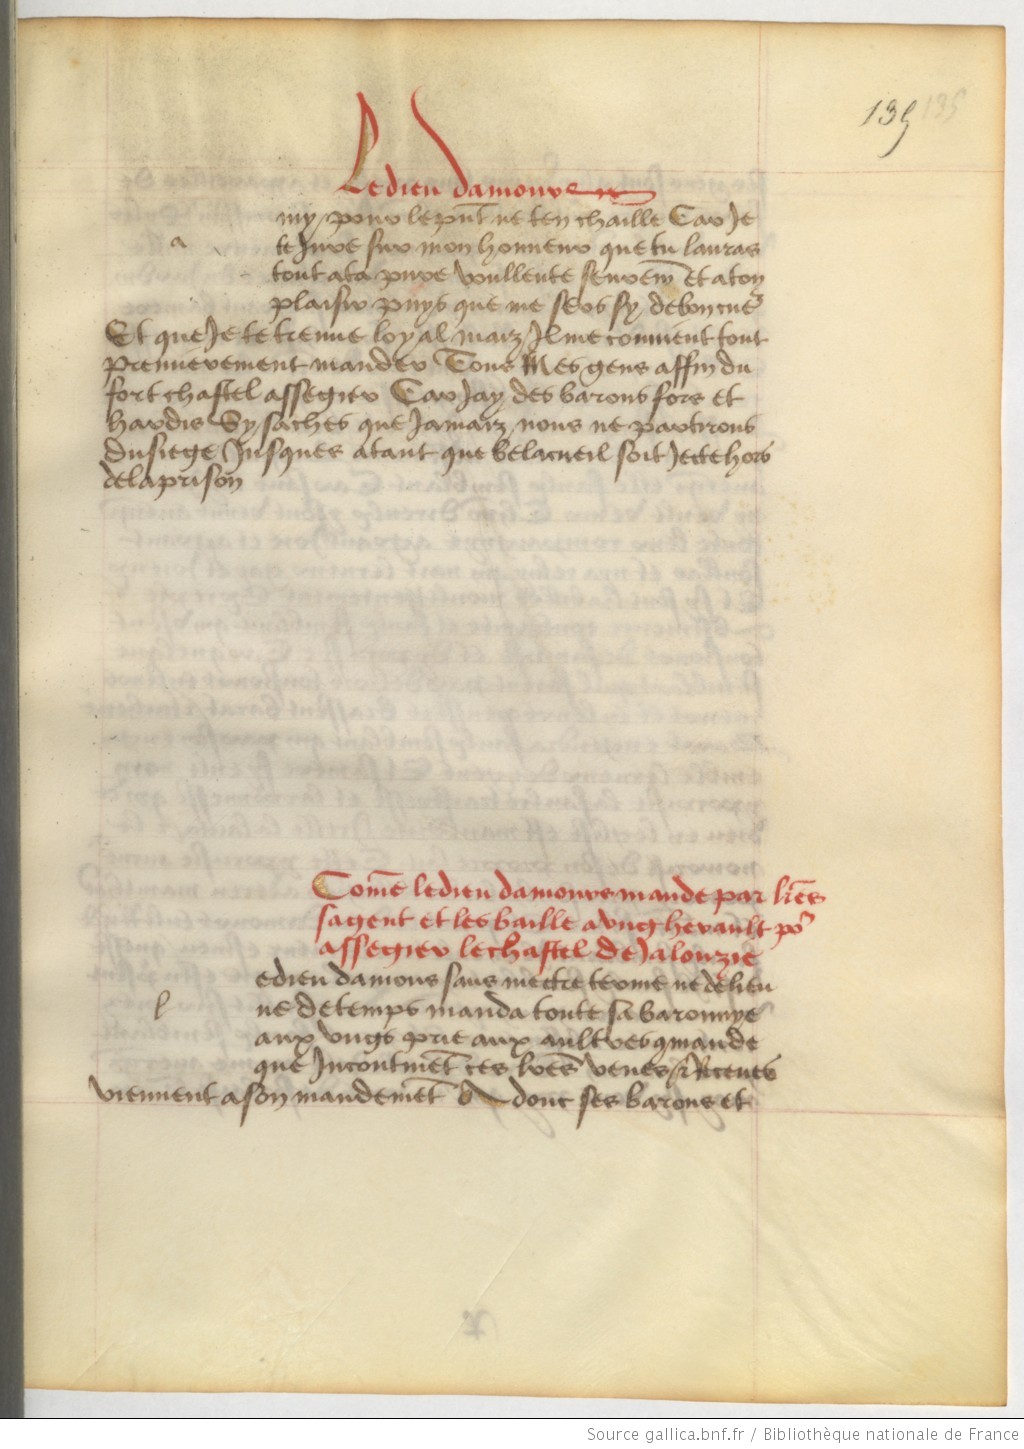 139 135
Le dieu damours
a
my pour le pnt ne ten chaille Car Je
te Jure sur mon honneur que tu lauras
tout ata pure voullente seurem̃ et aton
plaisir puys que me sers sy
Et que Je te treuue loyal mais Il me conuient tout
premierement mander Tous Mes gens affin du
fort chastel assegier Car Jay des barons fors et
hardis Sy saches que Jamaiz nous ne partirons
du siege Jusques atant que belacueil soit Jecte hors
dela prison
Com̃e le dieu damours mande par lr̃es
sagent et les baille a vng herault po^r
assegier le chastel de Jalouzie
l
edieu damours sans mectre terme ne de lieu
ne de temps manda toute sa baronnye
aux vngs prie aux aultres 9mande
que Incontinẽt ces lr̃es venes Receues
viennent a son mandemẽt donc ses barons et
Source gallica.bnf.fr / Bibliothèque nationale de France